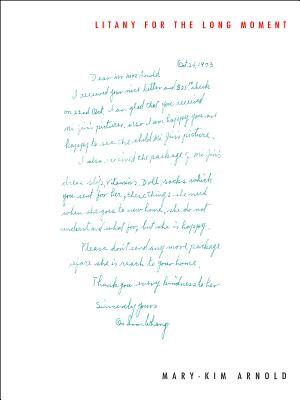 LITANY FOR THE LONG MOMENT
Oct 26, 1973
Dear Mr Mrs Arnold
I received your nice letter and $25.00 check
on 22nd Oct, I am glad that you received
Mi Jin's pictures, also I am happy you are
happy to see the child Mi Jin's picture.
I also received the package of Mi Jin's
dress, slip, vitamins, Doll, socks which
you sent for her, these things she need
when she goes to new home, she do not
understand what for, but she is happy.
Please don't send any more package
before she is reach to your home.
Thank you every kindness to her
Sincerely yours
MARY-KIM ARNOLD